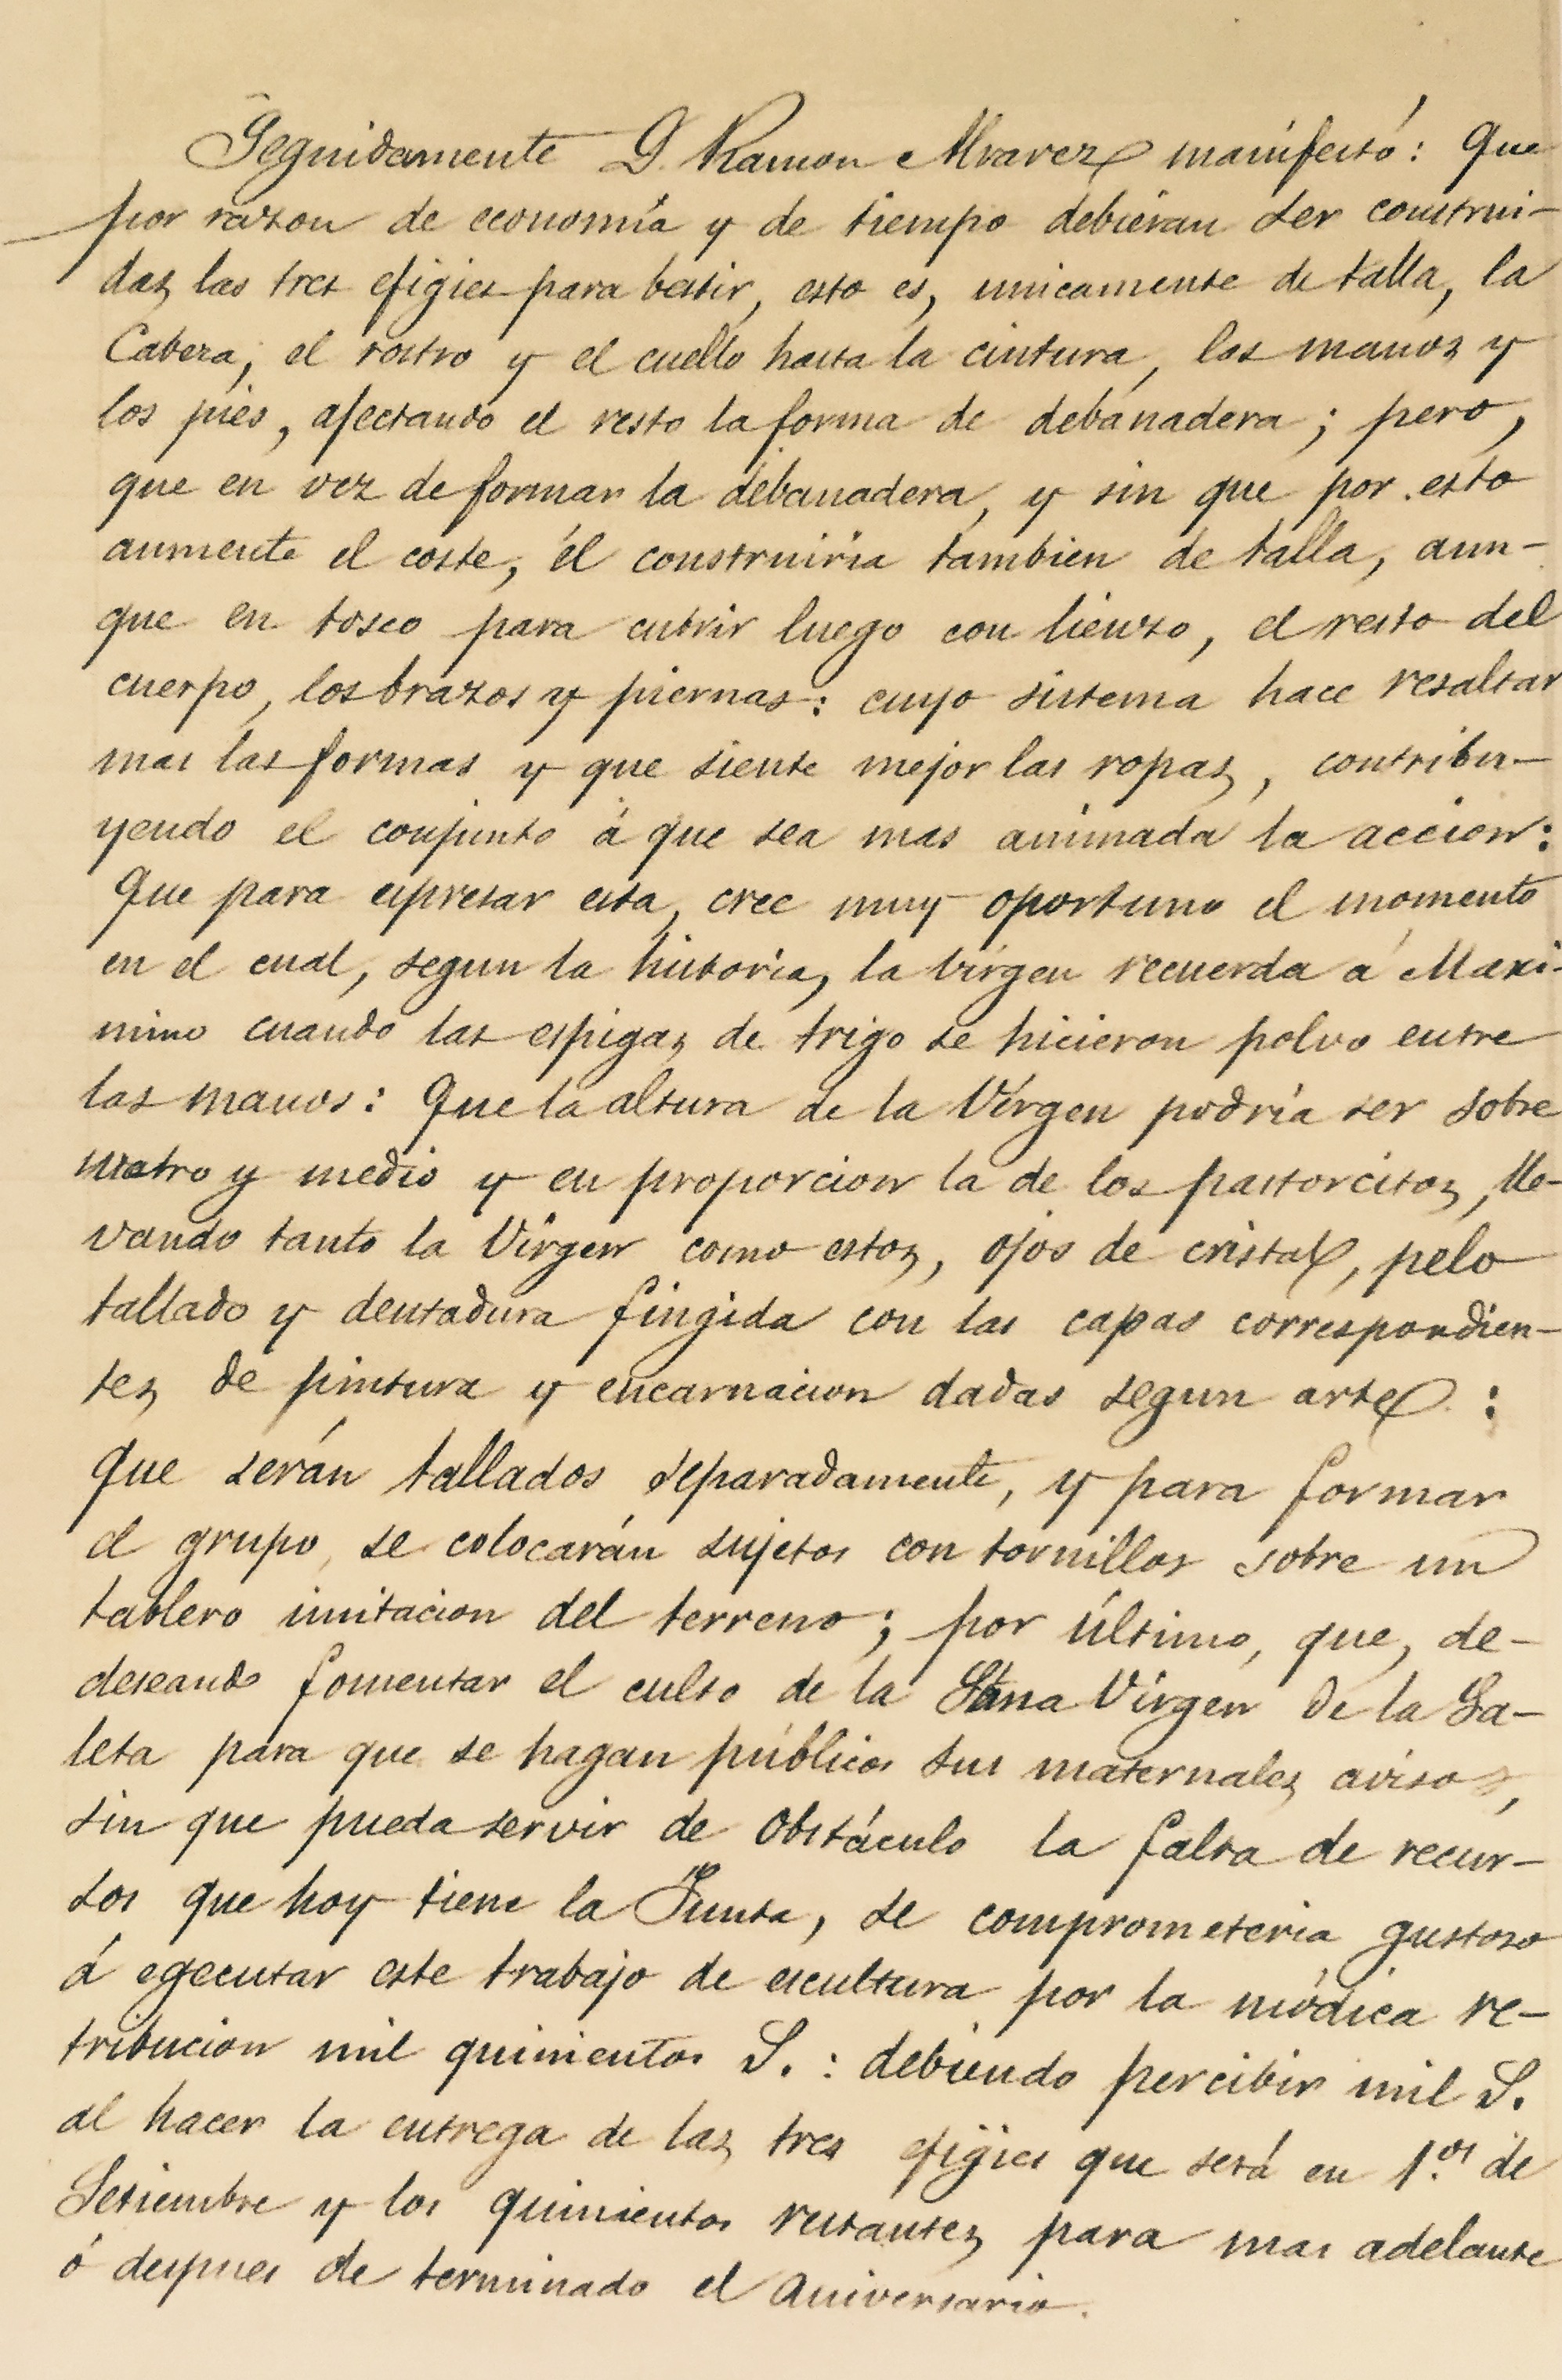 Seguidamente D. Ramon Alvarez manifestó: Que
por razon de economía y de tiempo debieran ser construi-
das las tres efigies para bestir, esto es, unicamente de talla, la
Cabeza, el rostro y el cuello hasta la cintura, las manos y
los pies, afectando el resto la forma de debanadera; pero,
que en vez de formar la debanadera, y sin que por esto
aumente el coste, él construiria tambien de talla, aun-
que en tosco para cubrir luego con lienzo, el resto del
cuerpo, los brazos y piernas: cuyo sistema hace resaltar
mas las formas y que siente mejor las ropas, contribu-
yendo el conjunto á que sea mas animada la accion:
Que para espresar esta, cree muy oportuno el momento
en el cual, segun la historia, la Virgen recuerda á Maxi-
mino cuando las espigas de trigo se hicieron polvo entre
las manos: Que la altura de la Vírgen podria ser sobre
metro y medio y en proporcion la de los pastorcitos, lle-
vando tanto la Vírgen como estos, ojos de cristal, pelo
tallado y dentadura fingida con las capas correspondien-
tes de pintura y encarnacion dadas segun arte:
que serán tallados separadamente, y para formar
el grupo, se colocarán sujetos con tornillos sobre un
tablero imitacion del terreno; por último, que, de-
deseando fomentar el culto de la Stma Vírgen de la Sa-
leta para que se hagan públicos sus maternales avisos,
sin que pueda servir de obstáculo la falta de recur-
sos que hoy tiene la Junta, se comprometeria gustoso
á egecutar este trabajo de escultura por la módica re-
tribucion mil quinientos S.: debiendo percibir mil S.
al hacer la entrega de las tres efigies que será en 1.os de
Setiembre y los quinientos restantes para mas adelante
ó despues de terminado el Aniversario.